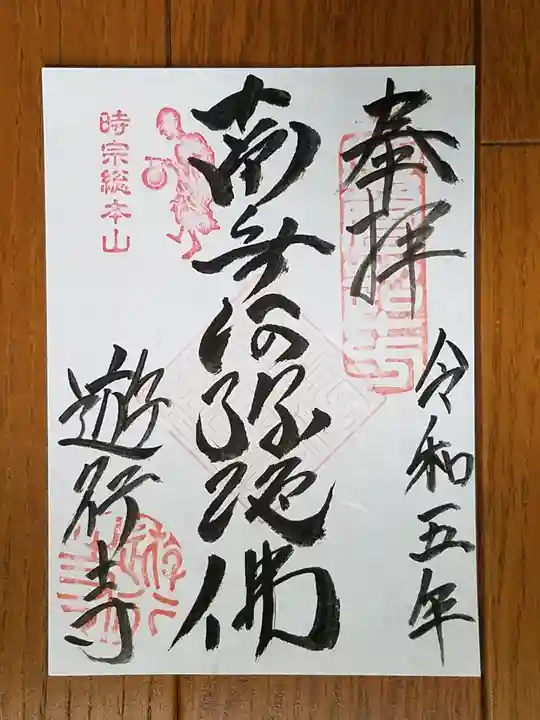 奉拝
令和五年
南無阿弥陀佛
時宗総本山
遊行寺